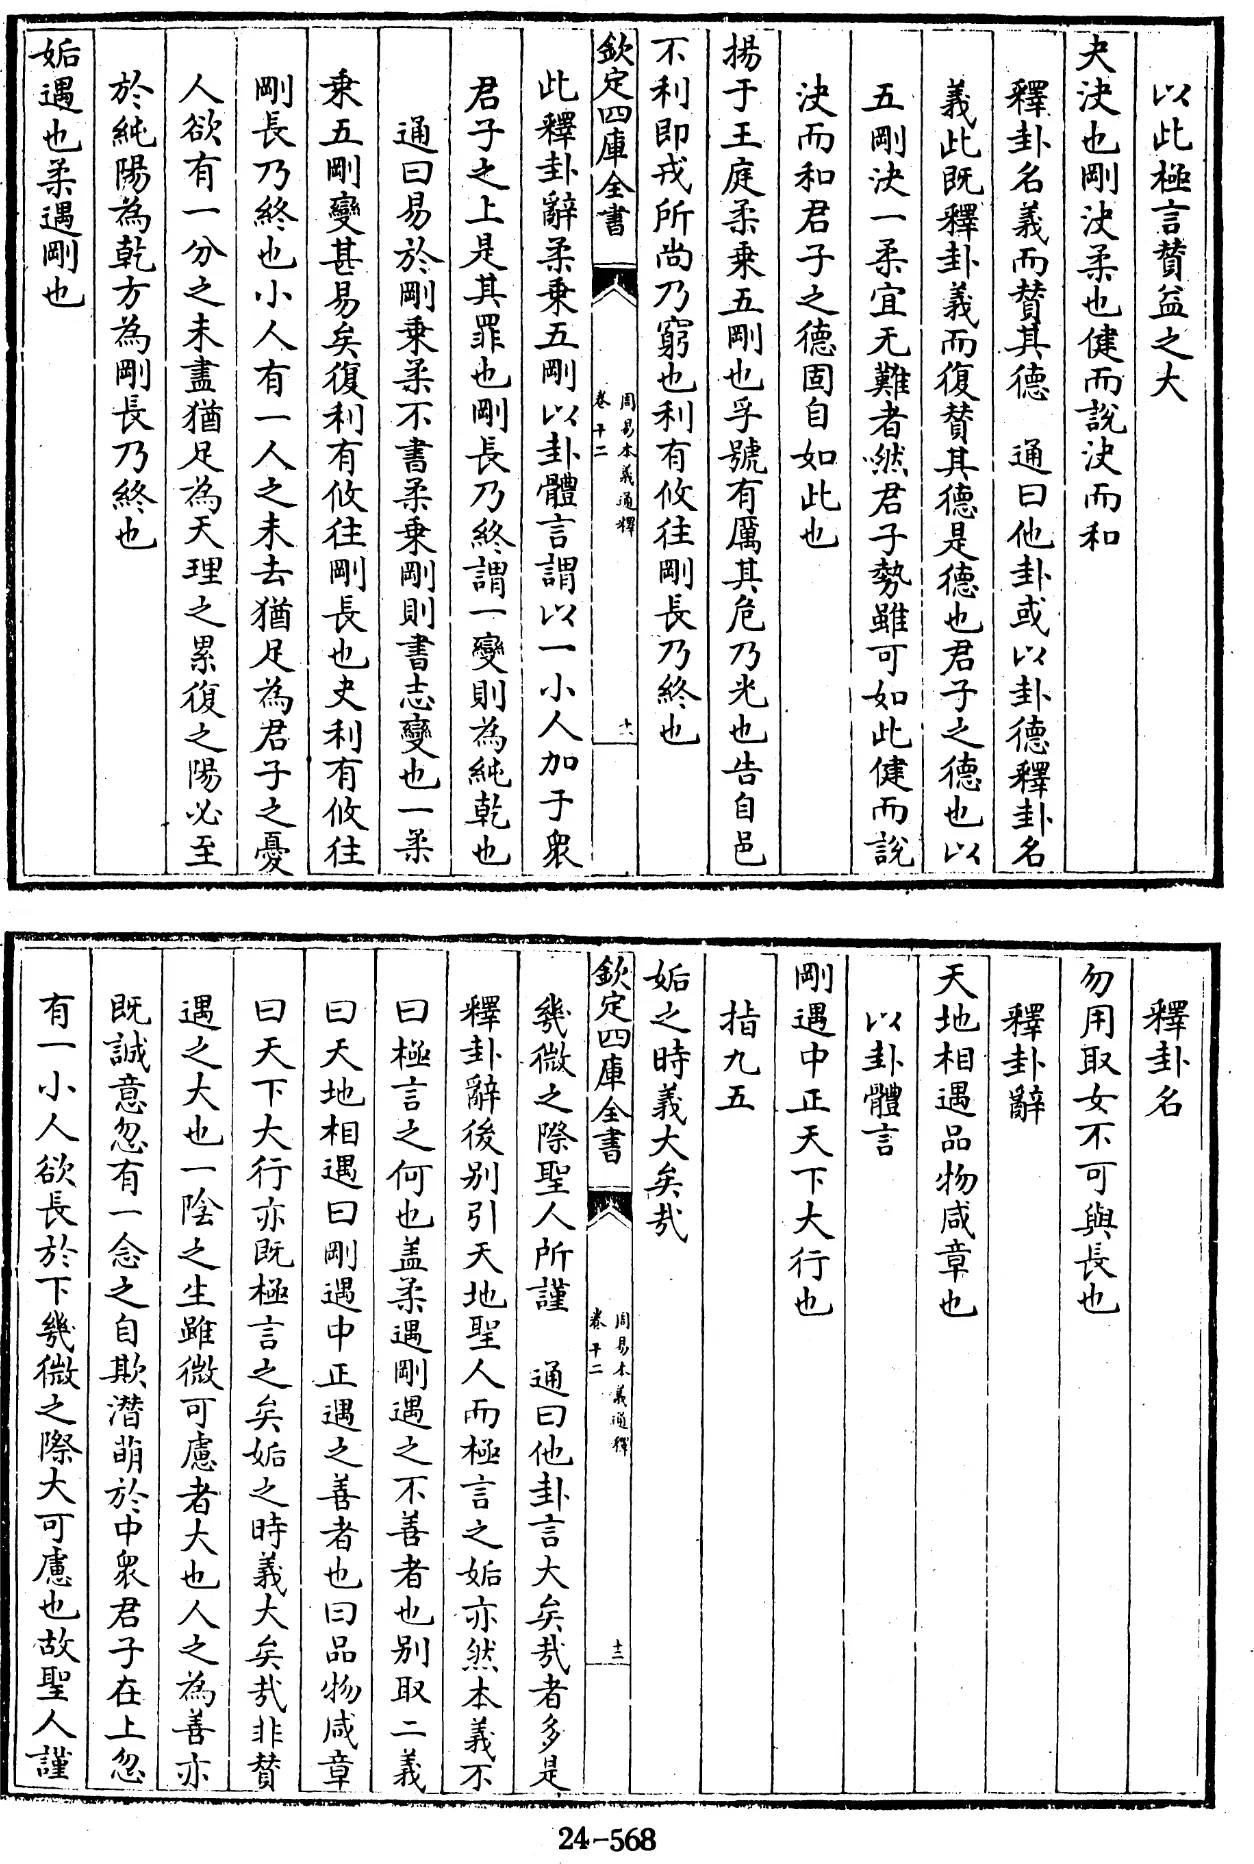 以此極言贊益之大
夬決也剛決柔也健而說決而和
釋卦名義而贊其德　通曰他卦或以卦德釋卦名
義此既釋卦義而復贊其德是德也君子之德也以
五剛決一柔宜无難者然君子勢雖可如此健而說
決而和君子之德固自如此也
揚于王庭柔乗五剛也孚號有厲其危乃光也告自邑
不利即戎所尚乃窮也利有攸往剛長乃終也
欽定四庫全書
周易本義通釋
卷十二
十一
此釋卦辭柔乗五剛以卦體言謂以一小人加于衆
君子之上是其罪也剛長乃終謂一變則為純乾也
通曰易於剛乗柔不書柔乗剛則書志變也一柔
乗五剛變甚易矣復利有攸往剛長也夬利有攸往
剛長乃終也小人有一人之未去猶足為君子之憂
人欲有一分之未盡猶足為天理之累復之陽必至
於純陽為乾方為剛長乃終也
姤遇也柔遇剛也
釋卦名
勿用取女不可與長也
釋卦辭
天地相遇品物咸章也
以卦體言
剛遇中正天下大行也
指九五
姤之時義大矣哉
欽定四庫全書
周易本義通釋
卷十二
十二
幾微之際聖人所謹　通曰他卦言大矣哉者多是
釋卦辭後别引天地聖人而極言之姤亦然本義不
曰極言之何也盖柔遇剛遇之不善者也别取二義
曰天地相遇曰剛遇中正遇之善者也曰品物咸章
曰天下大行亦既極言之矣姤之時義大矣哉非贊
遇之大也一陰之生雖微可慮者大也人之為善亦
既誠意忽有一念之自欺潛萌於中衆君子在上忽
有一小人欲長於下幾微之際大可慮也故聖人謹
24-568